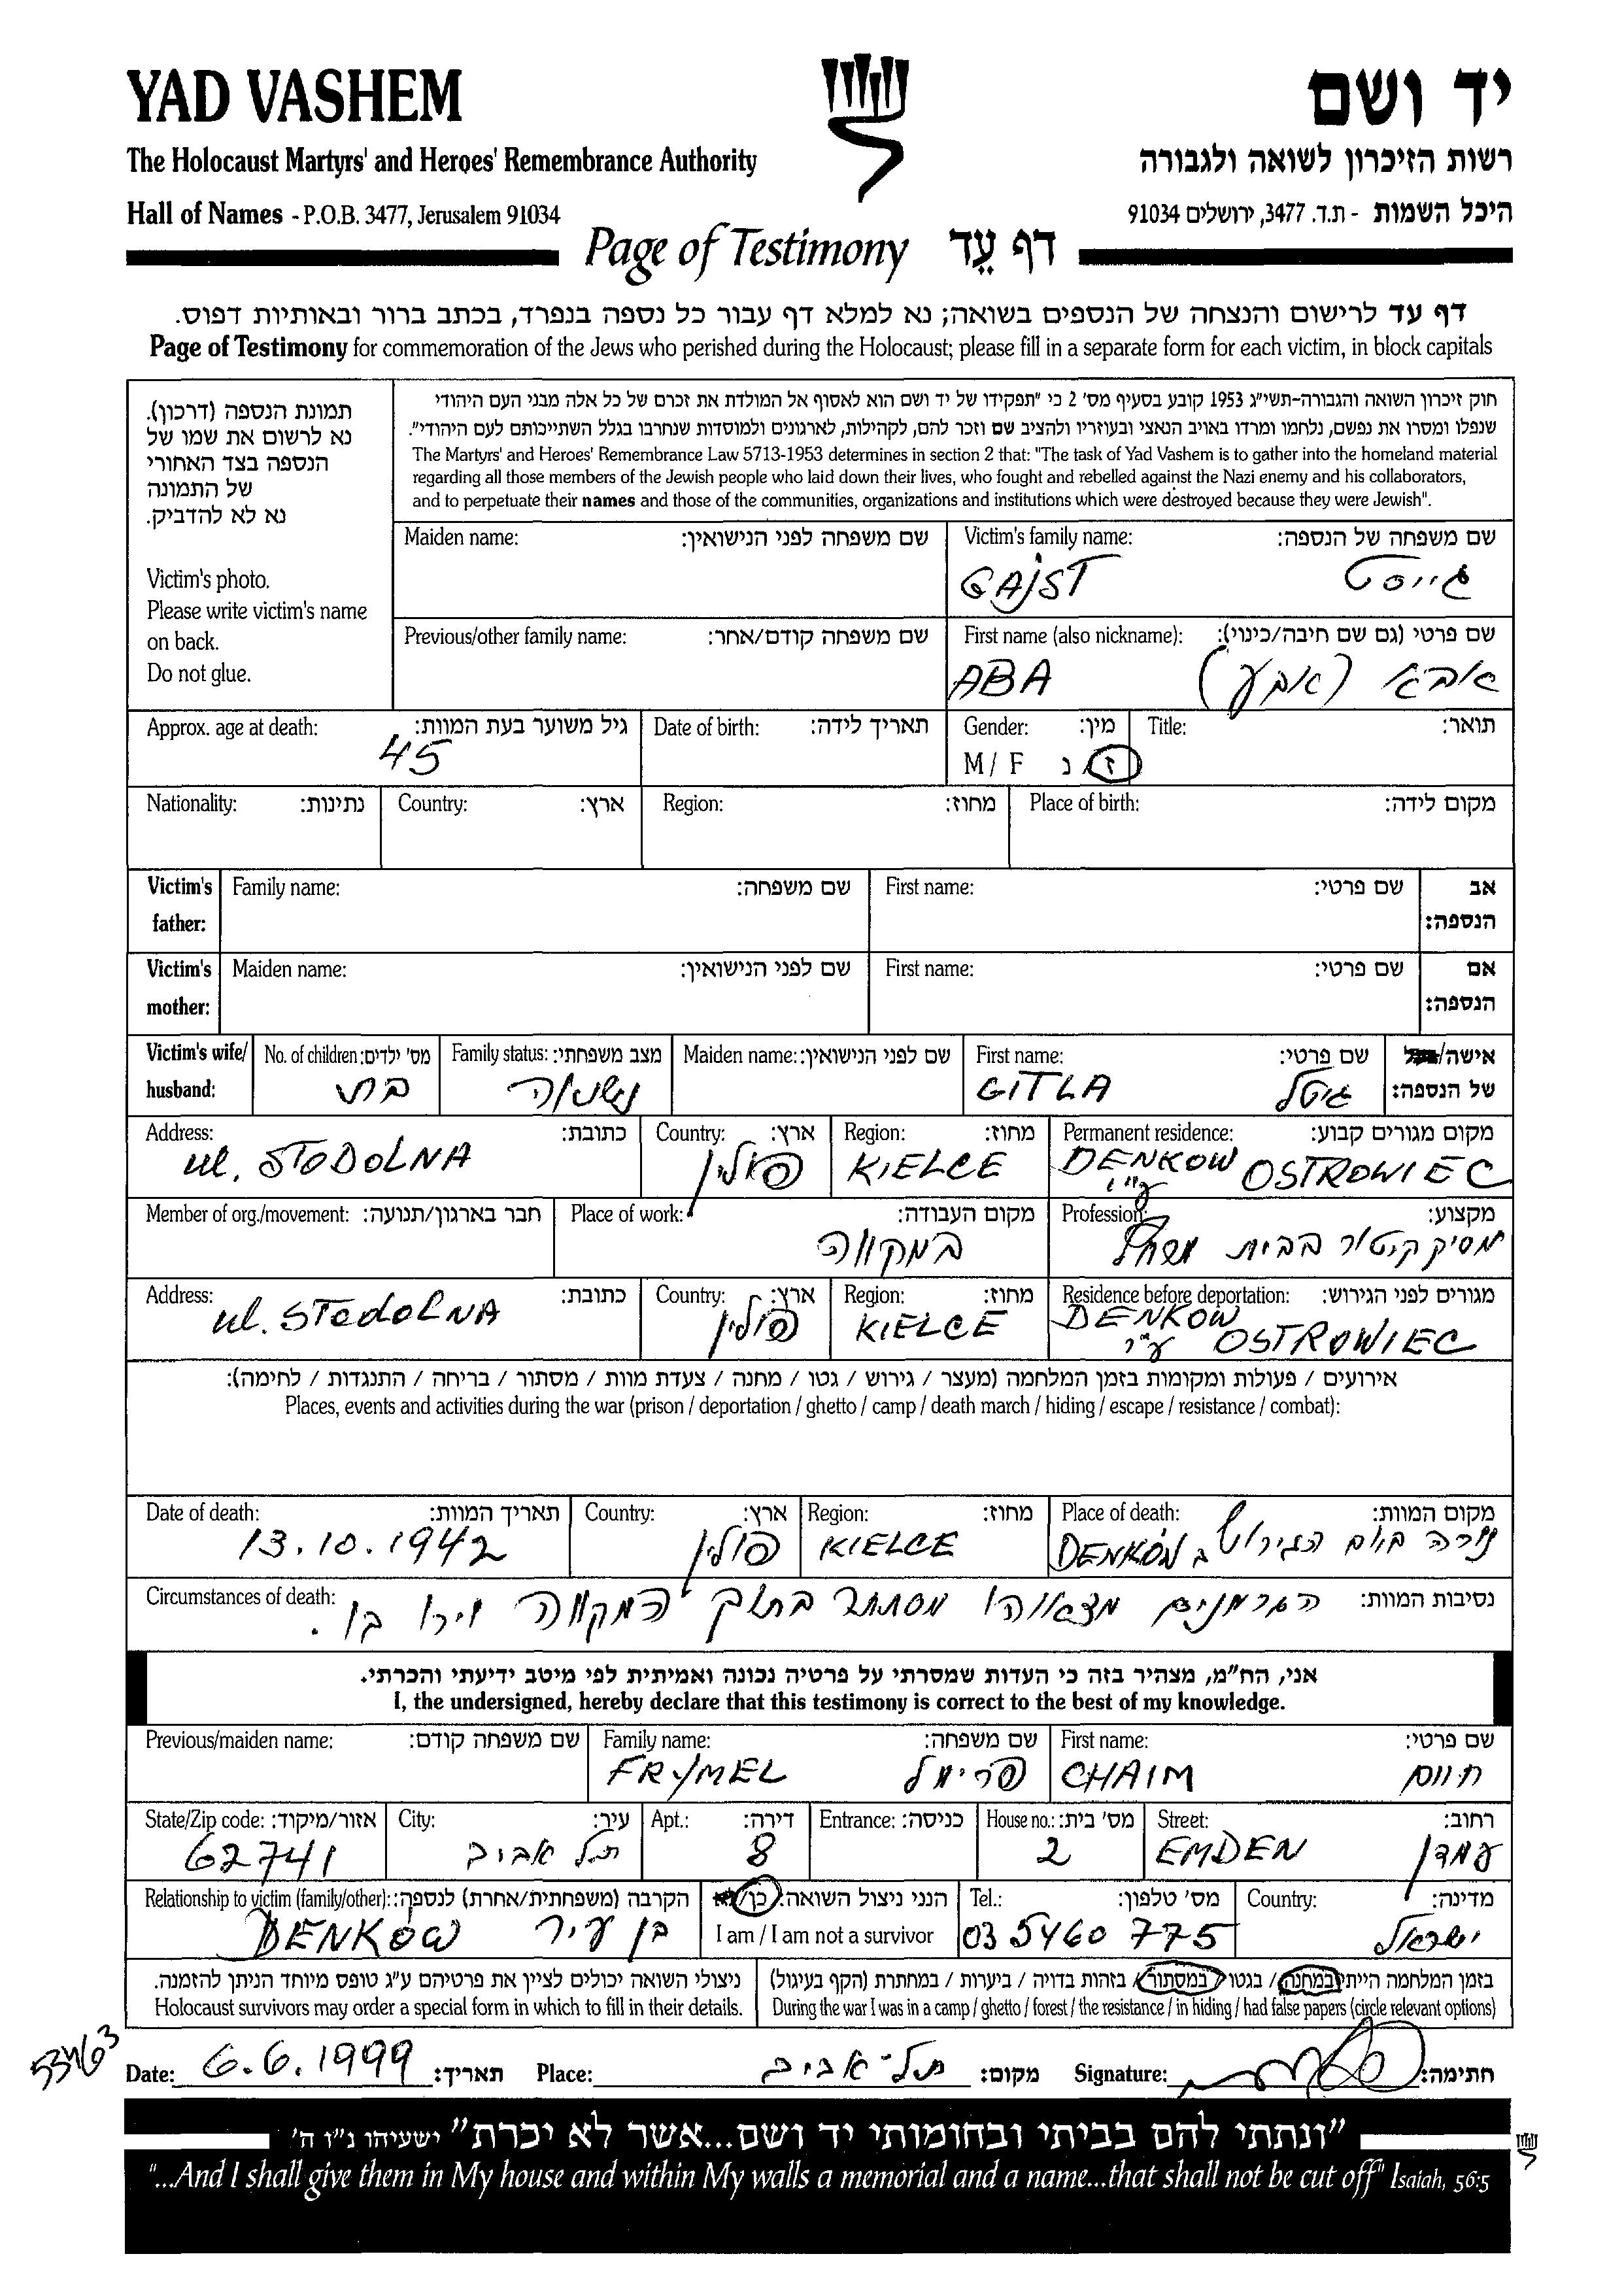 YAD VASHEM
יד ושם
The Holocaust Martyrs' and Heroes' Remembrance Authority
רשות הזיכרון לשואה ולגבורה
Hall of Names - P.O.B. 3477, Jerusalem 91034
היכל השמות - ת.ד. 3477, ירושלים 91034
Page of Testimony דף עֵד
דף עד לרישום והנצחה של הנספים בשואה; נא למלא דף עבור כל נספה בנפרד, בכתב ברור ובאותיות דפוס.
Page of Testimony for commemoration of the Jews who perished during the Holocaust; please fill in a separate form for each victim, in block capitals
תמונת הנספה (דרכון).
נא לרשום את שמו של
הנספה בצד האחורי
של התמונה
נא לא להדביק.
Victim's photo.
Please write victim's name
on back.
Do not glue.
חוק זיכרון השואה והגבורה-תשי"ג 1953 קובע בסעיף מס' 2 כי "תפקידו של יד ושם הוא לאסוף אל המולדת את זכרם של כל אלה מבני העם היהודי
שנפלו ומסרו את נפשם, נלחמו ומרדו באויב הנאצי ובעוזריו ולהציב שם וזכר להם, לקהילות, לארגונים ולמוסדות שנחרבו בגלל השתייכותם לעם היהודי".
The Martyrs' and Heroes' Remembrance Law 5713-1953 determines in section 2 that: "The task of Yad Vashem is to gather into the homeland material
regarding all those members of the Jewish people who laid down their lives, who fought and rebelled against the Nazi enemy and his collaborators,
and to perpetuate their names and those of the communities, organizations and institutions which were destroyed because they were Jewish".
Maiden name: שם משפחה לפני הנישואין: Victim's family name: שם משפחה של הנספה:
GAJST גייסט
Previous/other family name: שם משפחה קודם/אחר: First name (also nickname): שם פרטי (גם שם חיבה/כינוי):
ABA אבא (אבע)
Approx. age at death: גיל משוער בעת המוות: Date of birth: תאריך לידה: Gender: מין: Title: תואר:
45 M / F ז / נ
Nationality: נתינות: Country: ארץ: Region: מחוז: Place of birth: מקום לידה:
Victim's father: Family name: שם משפחה: First name: שם פרטי: אב הנספה:
Victim's mother: Maiden name: שם לפני הנישואין: First name: שם פרטי: אם הנספה:
Victim's wife/ husband: No. of children: מס' ילדים: Family status: מצב משפחתי: Maiden name: שם לפני הנישואין: First name: שם פרטי: אישה/ של הנספה:
בת נשוי/ה GITLA גיטל
Address: כתובת: Country: ארץ: Region: מחוז: Permanent residence: מקום מגורים קבוע:
ul. STODOLNA פולין KIELCE DENKOW ע"י OSTROWIEC
Member of org./movement: חבר בארגון/תנועה: Place of work: מקום העבודה: Profession: מקצוע:
במקווה מסיק קיטור בבית מרחץ
Address: כתובת: Country: ארץ: Region: מחוז: Residence before deportation: מגורים לפני הגירוש:
ul. STODOLNA פולין KIELCE DENKOW ע"י OSTROWIEC
אירועים / פעולות ומקומות בזמן המלחמה (מעצר / גירוש / גטו / מחנה / צעדת מוות / מסתור / בריחה / התנגדות / לחימה):
Places, events and activities during the war (prison / deportation / ghetto / camp / death march / hiding / escape / resistance / combat):
Date of death: תאריך המוות: Country: ארץ: Region: מחוז: Place of death: מקום המוות:
13.10.1942 פולין KIELCE נורה ביום הגירוש ב DENKÓW
Circumstances of death: נסיבות המוות:
הגרמנים מצאוהו מסתתר בתוך המקווה וירו בו.
אני, הח"מ, מצהיר בזה כי העדות שמסרתי על פרטיה נכונה ואמיתית לפי מיטב ידיעתי והכרתי.
I, the undersigned, hereby declare that this testimony is correct to the best of my knowledge.
Previous/maiden name: שם משפחה קודם: Family name: שם משפחה: First name: שם פרטי:
FRYMEL פרימל CHAIM חיים
State/Zip code: אזור/מיקוד: City: עיר: Apt.: דירה: Entrance: כניסה: House no.: מס' בית: Street: רחוב:
62741 תל אביב 8 2 EMDEN עמדן
Relationship to victim (family/other): הקרבה (משפחתית/אחרת) לנספה: הנני ניצול השואה: כן/ Tel.: מס' טלפון: Country: מדינה:
DENKÓW בן עיר I am / I am not a survivor 03 5460 775 ישראל
ניצולי השואה יכולים לציין את פרטיהם ע"ג טופס מיוחד הניתן להזמנה.
Holocaust survivors may order a special form in which to fill in their details.
בזמן המלחמה הייתי במחנה / בגטו / במסתור / בזהות בדויה / ביערות / במחתרת (הקף בעיגול)
During the war I was in a camp / ghetto / forest / the resistance / in hiding / had false papers (circle relevant options)
53463
Date: 6.6.1999 תאריך: Place: תל-אביב מקום: Signature: חתימה:
"ונתתי להם בביתי ובחומותי יד ושם...אשר לא יכרת" ישעיהו נ"ו ה'
"...And I shall give them in My house and within My walls a memorial and a name...that shall not be cut off" Isaiah, 56:5